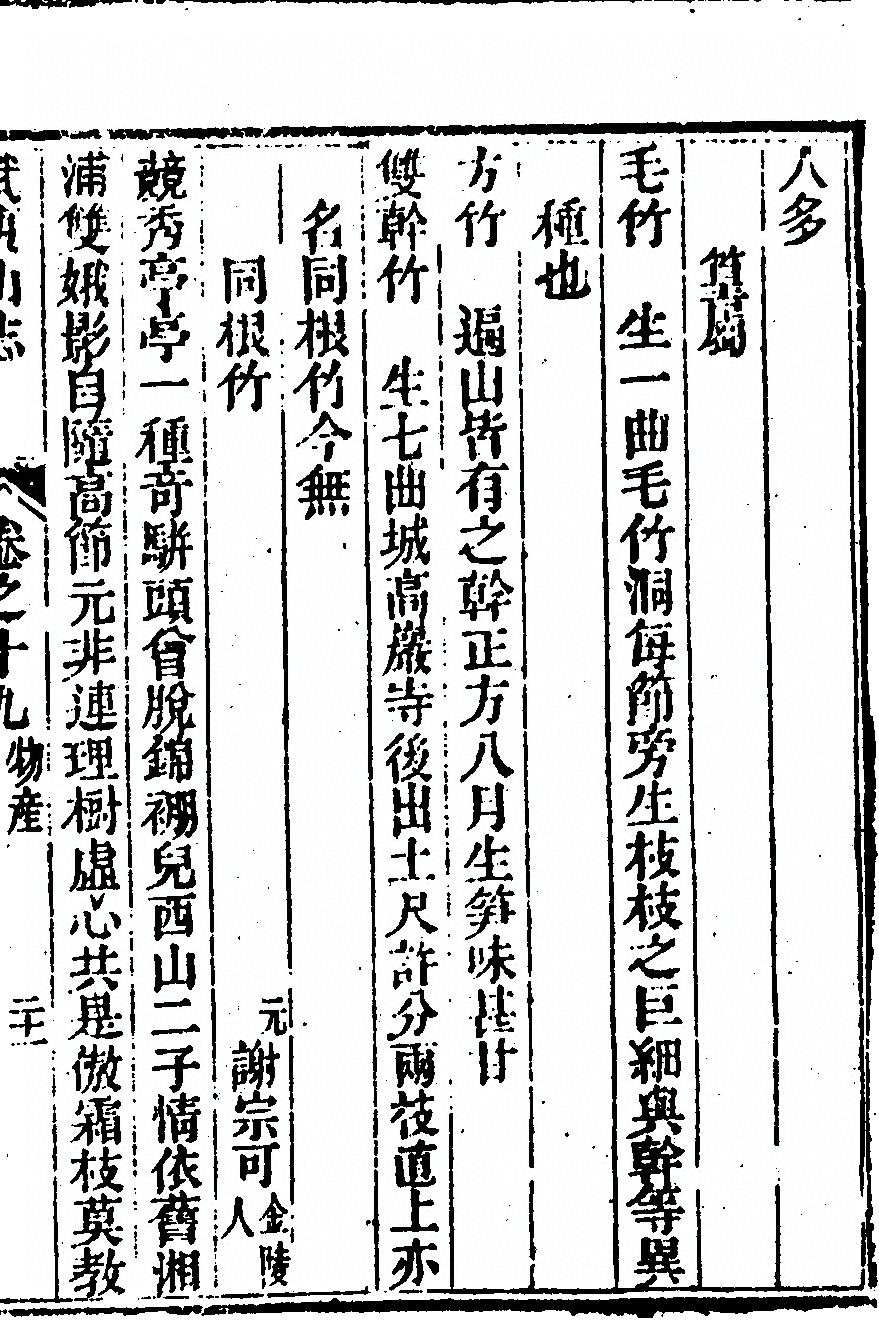 人多
竹屬
毛竹　生一曲毛竹洞每節旁生枝枝之巨細與幹等異
種也
方竹　遍山皆有之幹正方八月生筍味甚甘
雙幹竹　生七曲城高巖寺後出土尺許分兩枝直上亦
名同根竹今無
同根竹　元謝宗可金陵人
競秀亭亭一種奇駢頭曾脫錦裯兒西山二子情依舊湘
浦雙娥影自隨高節元非連理樹虛心共是傲霜枝莫教
山志　卷之十九物產　二十一